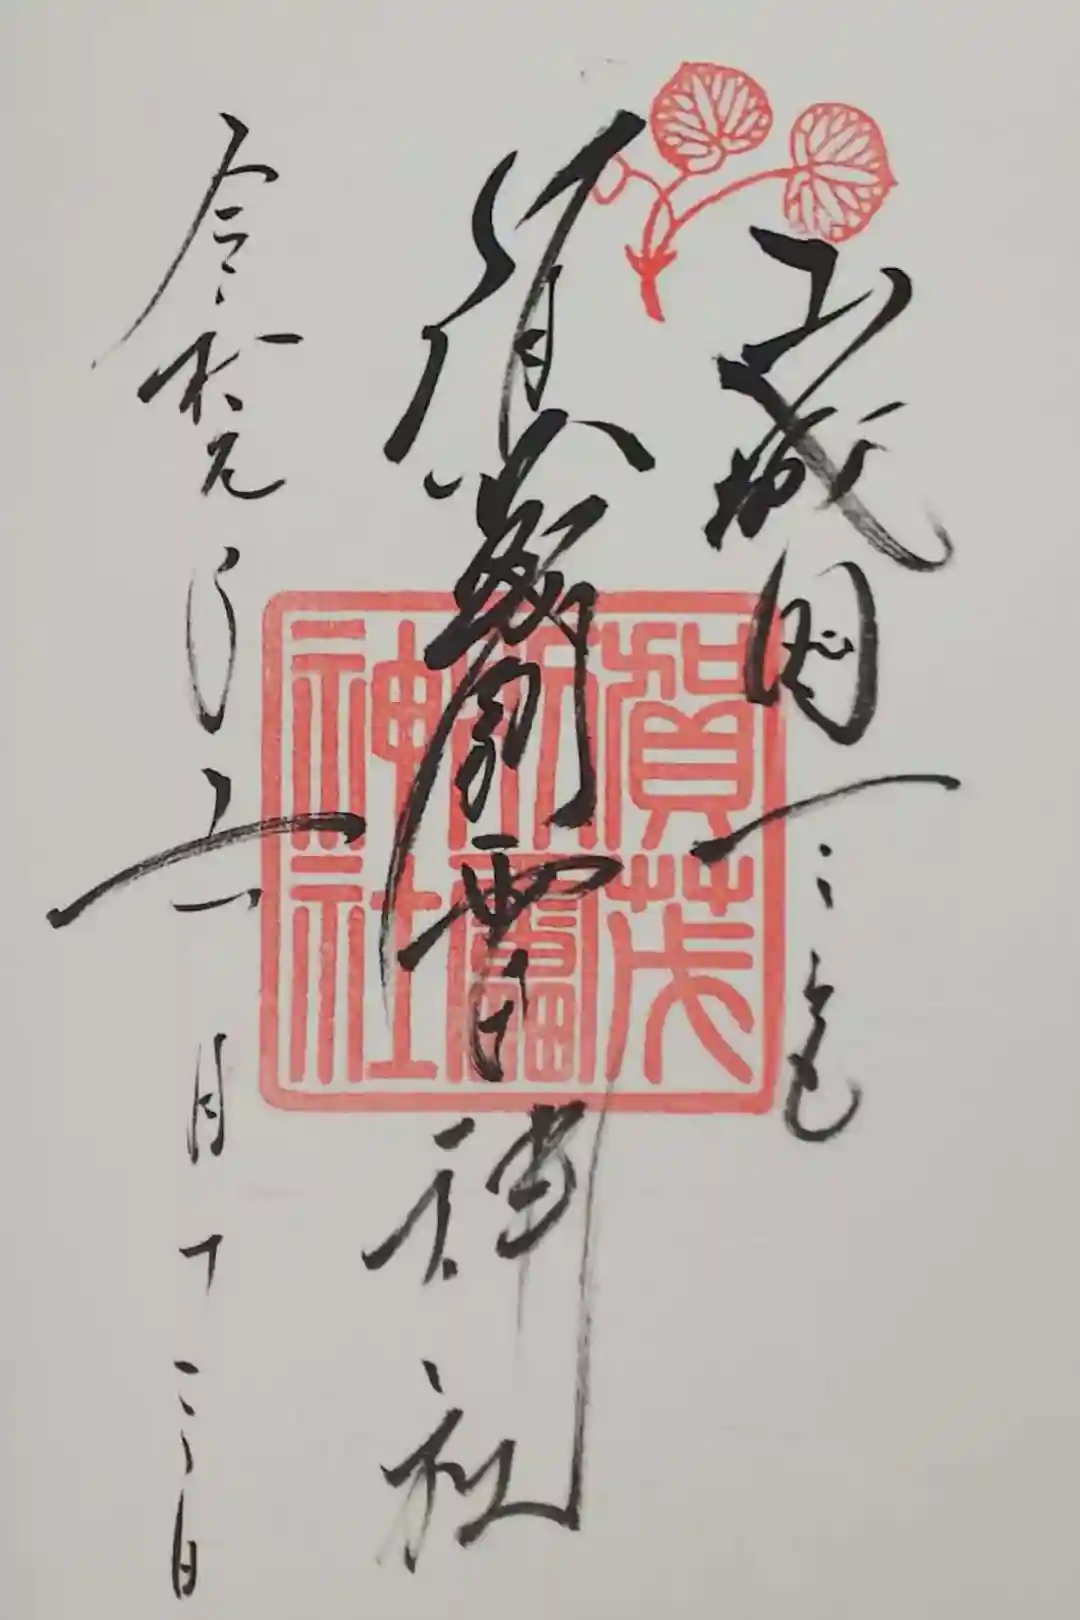 山城国一之宮
賀茂別雷神社
令和元年十一月十三日
賀茂
別雷
神社